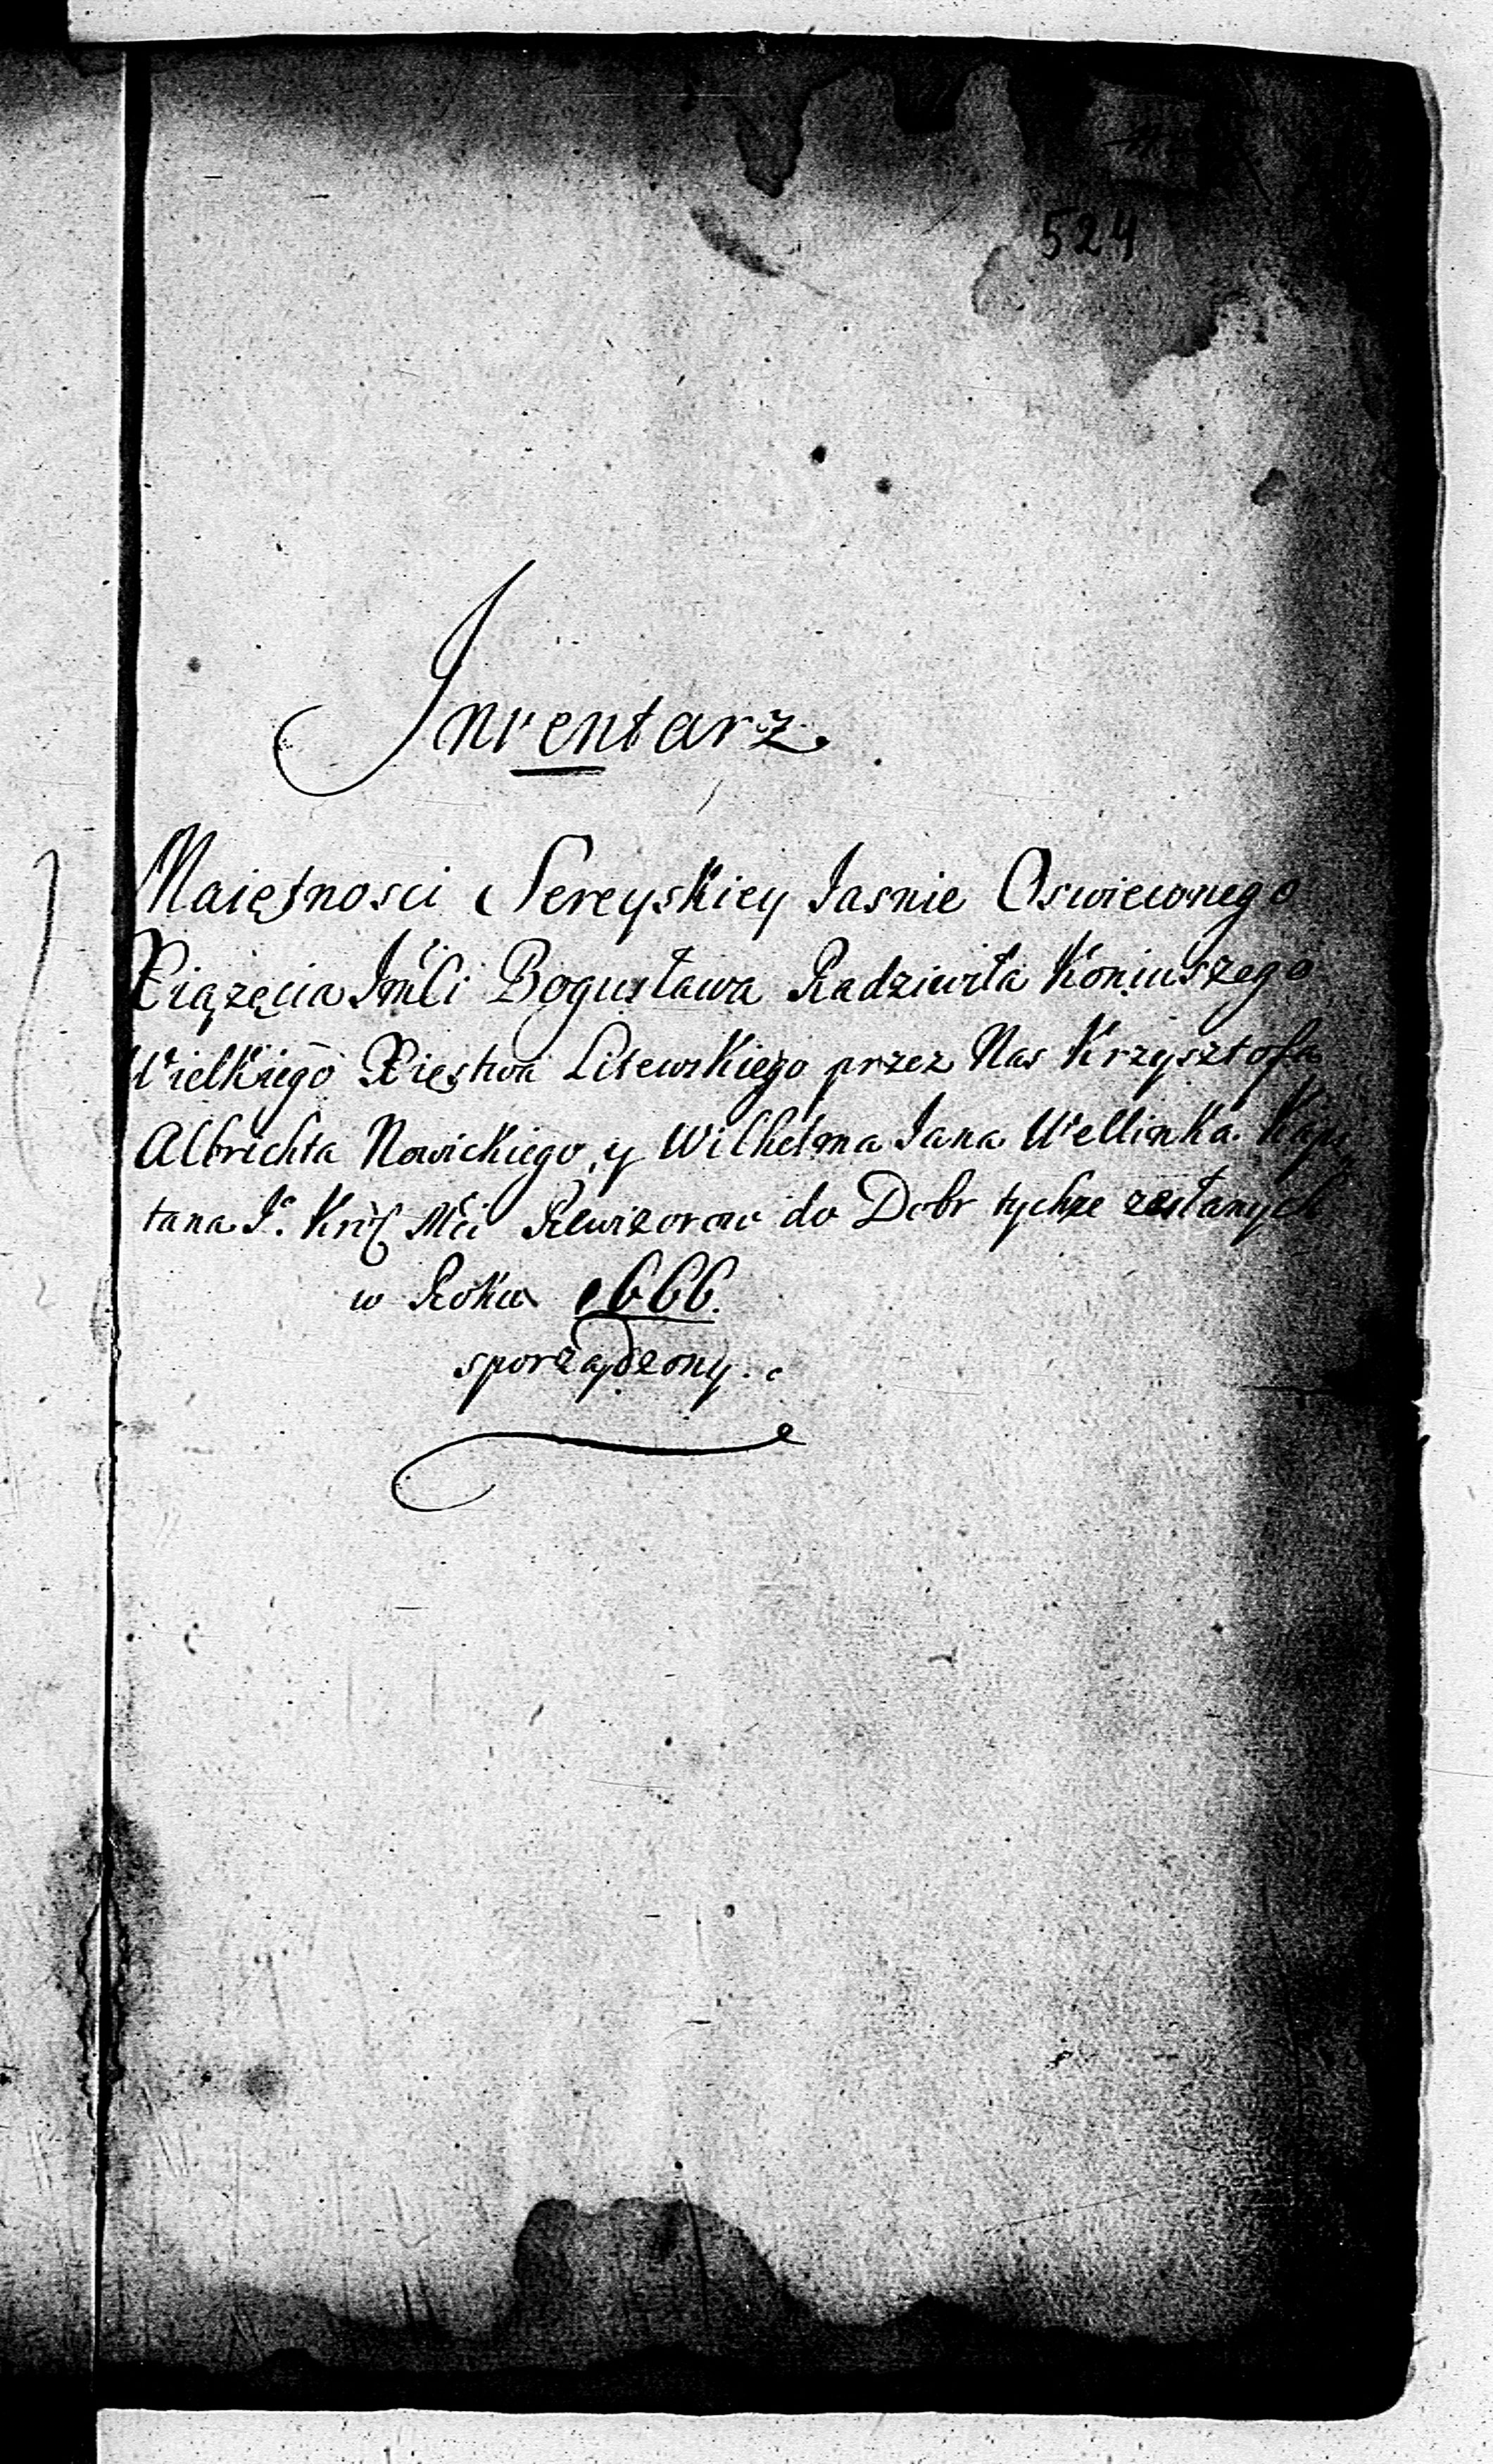 524
Inventarz
Maiętnosci Sereyskiey Iasnie Oswieconego
Xiążęcia Imści Bogusława Radziwiła Koniuszego
Wielkiego Xięstwa Litewskiego przez Nas Krzysztofa
Albrichta Nowickiego, y Wilhelma Iana Wellinka Kapi
tana Jº. Król Mści Rewizorow do Dobr tychże zesłanych
w Roku 1666.
sporządzony.